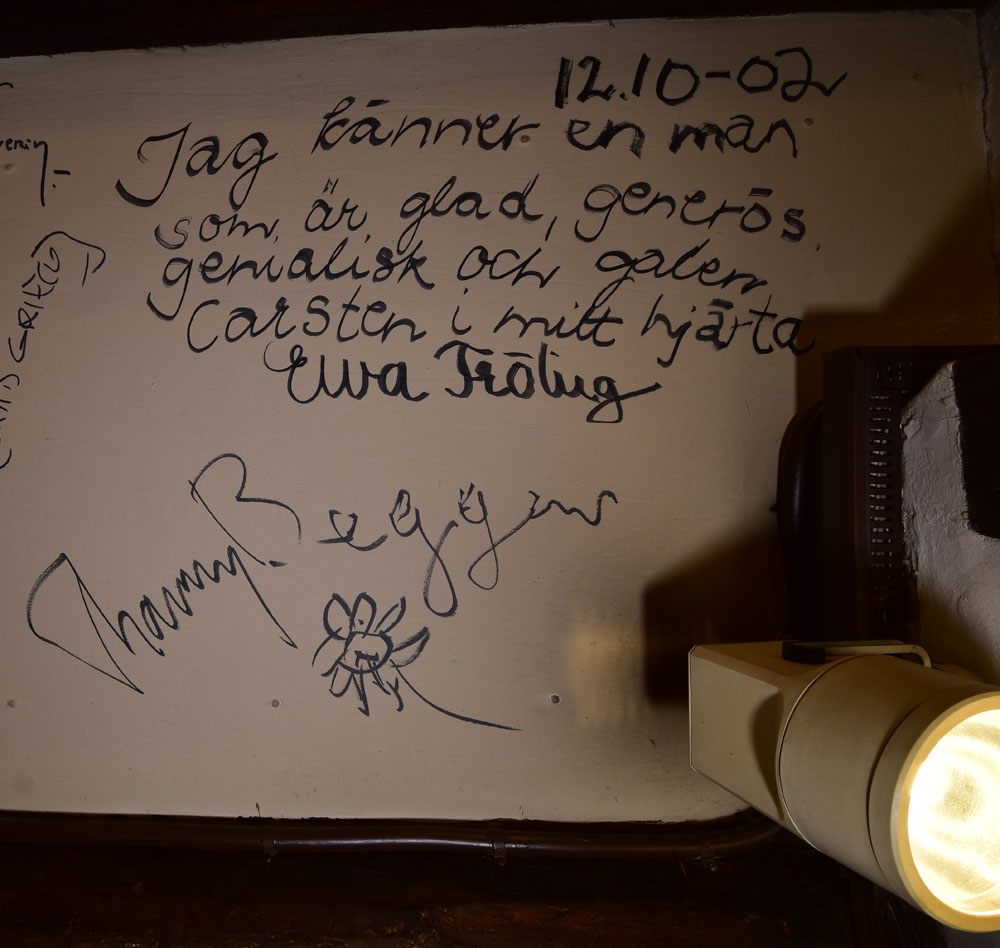 12.10-02
Jag känner en man
som är glad, generös
genialisk och galen
Carsten i mitt hjärta
Ewa Fröling